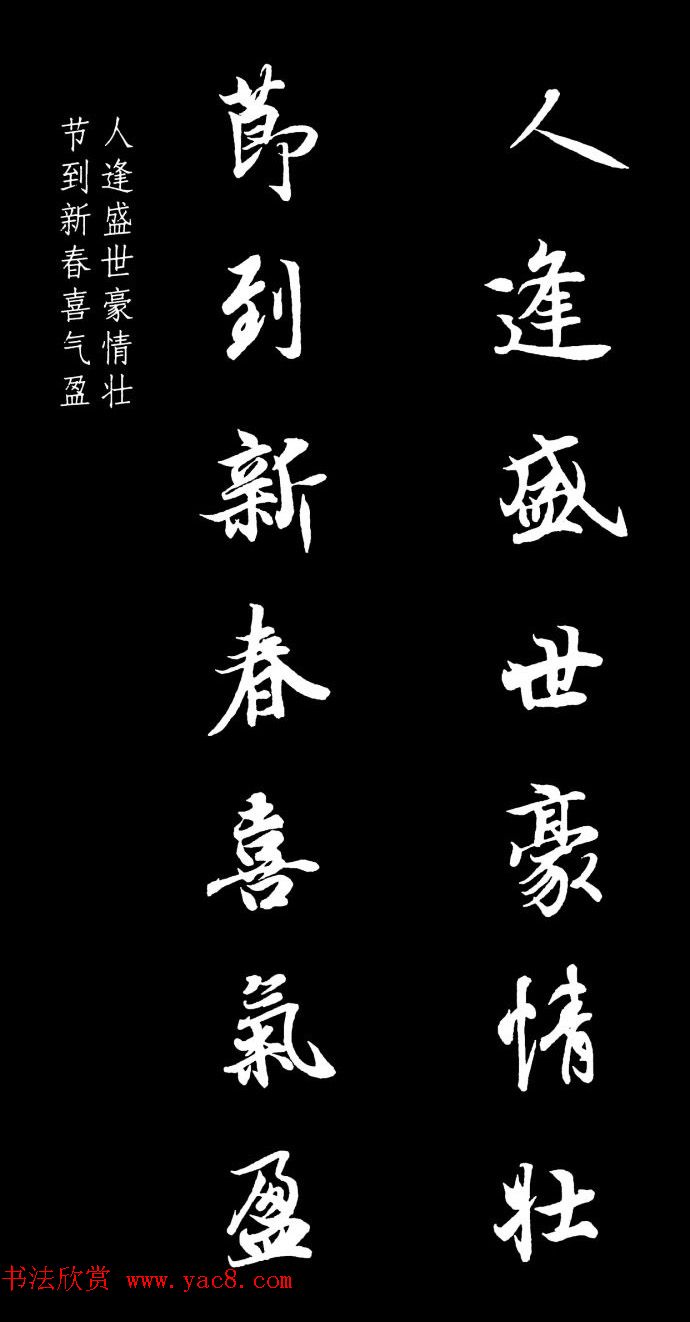 人逢盛世豪情壮
節到新春喜氣盈
人逢盛世豪情壮
节到新春喜气盈
书法欣赏 www.yac8.com